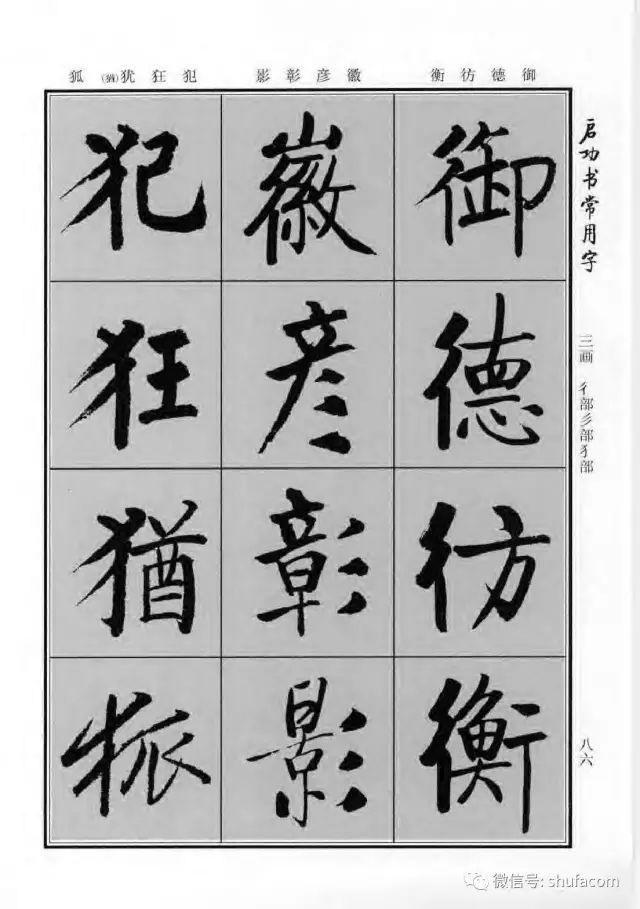 御德彷衡
徽彦彰影
犯狂犹(猶)狐
御
德
彷
衡
徽
彦
彰
影
犯
狂
猶
狐
启功书常用字
三画 彳部彡部犭部
八六
微信号: shufacom